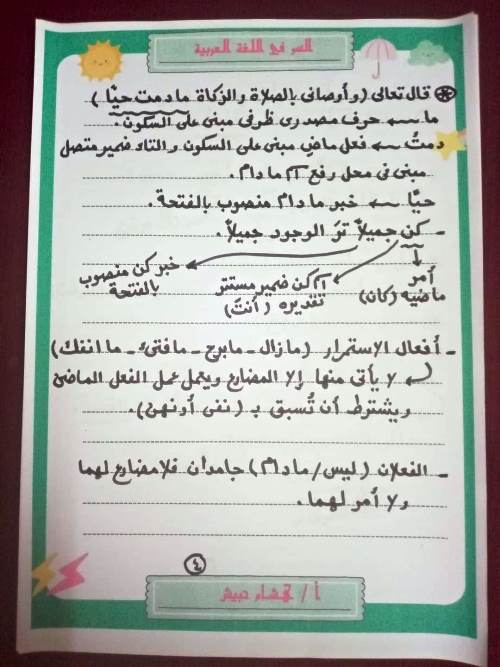 السر في اللغة العربية
* قال تعالى (وأوصانى بالصلاة والزكاة ما دمت حيًا)
ما ← حرف مصدرى ظرفى مبنى على السكون.
دمتُ ← فعل ماضِ مبنى على السكون والتاء ضمير متصل
مبنى فى محل رفع اسم مادام.
حيًا ← خبر مادام منصوب بالفتحة.
- كن جميلاً ترَ الوجود جميلاً.
أمر ماضيه (كان)
اسم كن ضمير مستتر تقديره (أنتَ)
خبر كن منصوب بالفتحة
- أفعال الإستمرار (مازال - مابرح - مافتىء - ما انفك)
لا يأتى منها إلا المضارع ويعمل عمل الفعل الماضى
ويشترط أن تُسبق بـ (نفى أو نهى).
- الفعلان (ليس/مادام) جامدان فلا مضارع لهما
ولا أمر لهما.
٤
أ / هشام حبيش